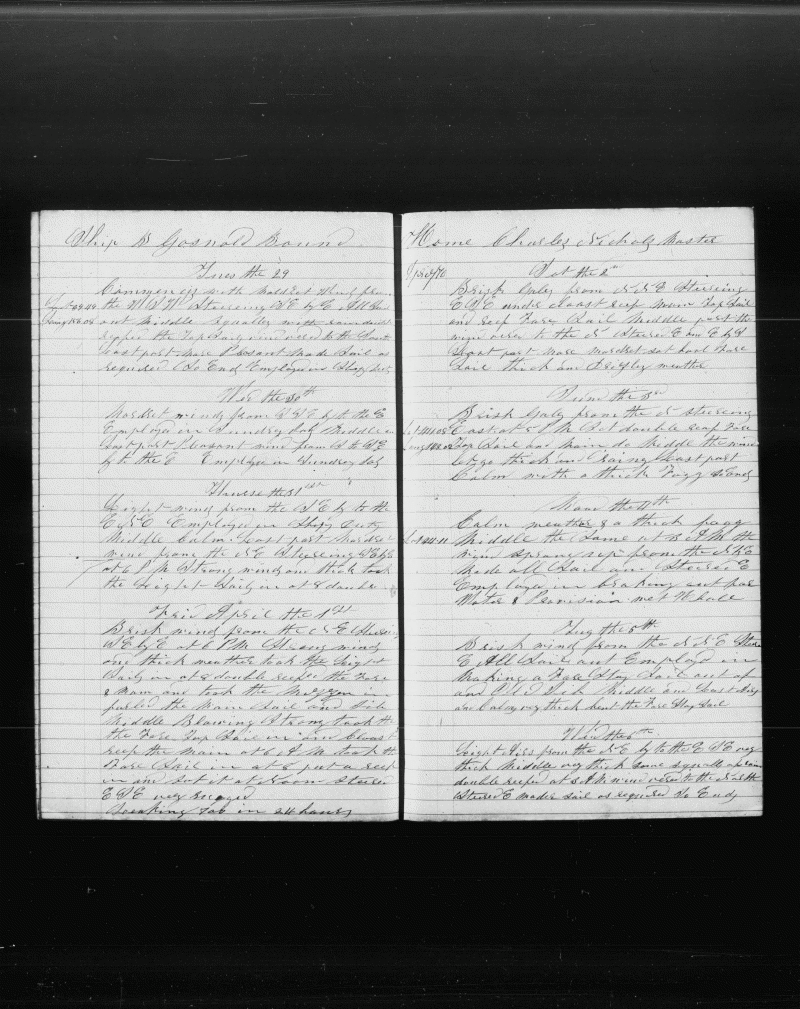 Ship B Gosnold Bound
Tues the 29
Commences with Modret Wind from
the W S W Steering S E by E All Sail
out Middle Squally with rain double
the Top Sails wind to the South
Last part More Plesant Made Sail as
required So End Employd in Ships duty
Wes the 30th
Modret winds from S S E by to the E
Employd in Sundry Jobs Middle an
Last part Plesant wind from S to S E
by to the E Employd in Sundry Jobs
Thurse the 31st
Light wind from the S E by to the
E N E Employd in Ships Duty
Middle Calm Last part Modret
wind from the N E Steering S E by E
at 6 P M Strong winds and thick took
the Light Sails in at 8 double
Frid April the 1st
Brisk wind from the N E Steering
S E by E at 6 P M Strong winds
and thick weather took the Light
Sails in at 8 double reefed the Fore
& Main and took the Mizzen in
furled the Main Sail and Jib
Middle Blowing Strong took the
the Fore Top Sail in and Close
reef the Main at 6 A M took the
Fore Sail in at 8 put a reef
in and set it at Noon Steered
E S E very rugged
Job in 24 hours
Home Charles Nichols Master
Sat the 2
Brisk Galy from N N E Steering
E S E under Cloast reef Main Top Sail
and reef Fore Sail Middle part the
wind veer to the N Steered E and E by S
Last part More Modret Set hool Fore
Sail thick an Drizley weather
Sun the 3
Brisk Galy from the N steering
East at 5 P M Set double reef Fore
Top Sail and Main do Middle the same
thick and Rainy Last part
Calm with a thick Fogg So Ends
Mon the 4th
Calm weather & a thick fogg
Middle the Same at 8 A M the
wind sprang up from the N & E
Made all Sail an Steered E
Employd in braking out for
Water & Provision met Whale
Tus the 5th
Brisk wind from the N N E Steer
E All Sail out Employd in
Making a Fore Stay Sail out of
an Old Middle and Last
an Calm very thick bent the Fore Stay Sail
Wed the 6th
Light Airs from the N E by to the E S E very
thick Middle very thick some squalls of rain
double reefed at 8 A M wind veer to the N
Steered E made sail as required So Ends